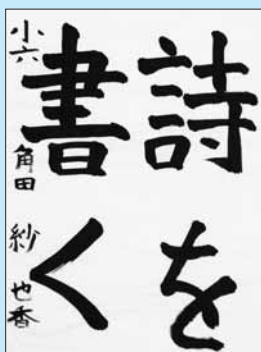 詩を
書く
小六 角田 紗也香